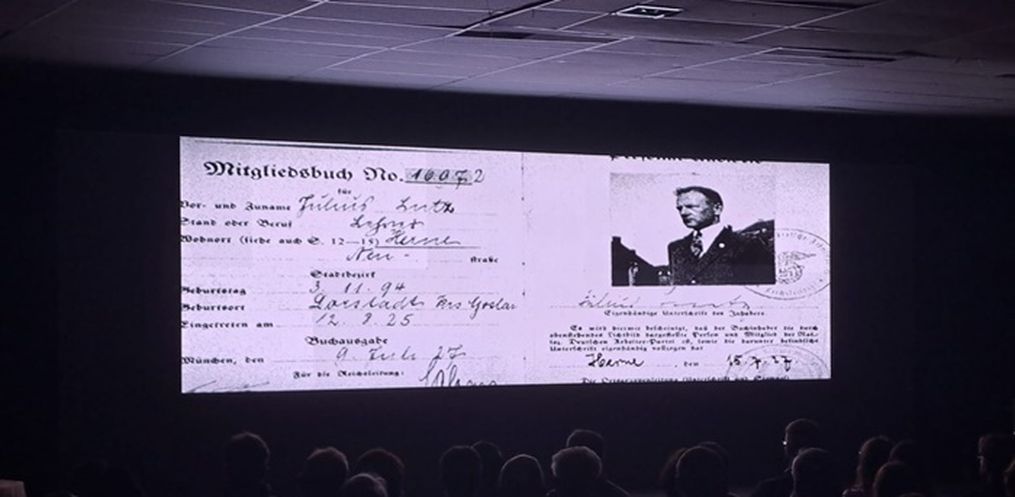 Mitgliedsbuch No. 16072
für
Vor- und Zuname Julius
Stand oder Beruf Lehrer
Wohnort (siehe auch S. 12—15) Herne
Neu- straße
Stadtbezirk
Geburtstag 3. 11. 94
Geburtsort Dorstadt Krs Goslar
Eingetreten am 12. 8. 25
Buchausgabe
München, den 9. Juli 27
Für die Reichsleitung:
Eigenhändige Unterschrift des Inhabers
Es wird hiermit bescheinigt, daß der Buchinhaber die durch
obenstehendes Lichtbild dargestellte Person und Mitglied der Nat.-
soz. Deutschen Arbeiter-Partei ist, sowie die darunter befindliche
Unterschrift eigenhändig vollzogen hat
Herne, den 15.7.27